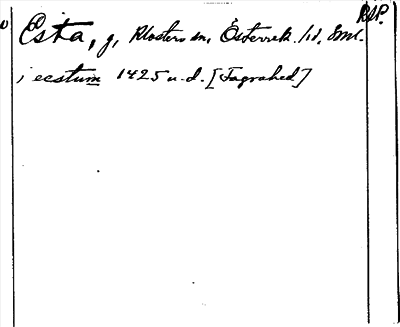 RSP.
Östa, g, Klosters sn, Österrek. hd. Sml.
i eestum 1425 u.d. [Fagrahed]